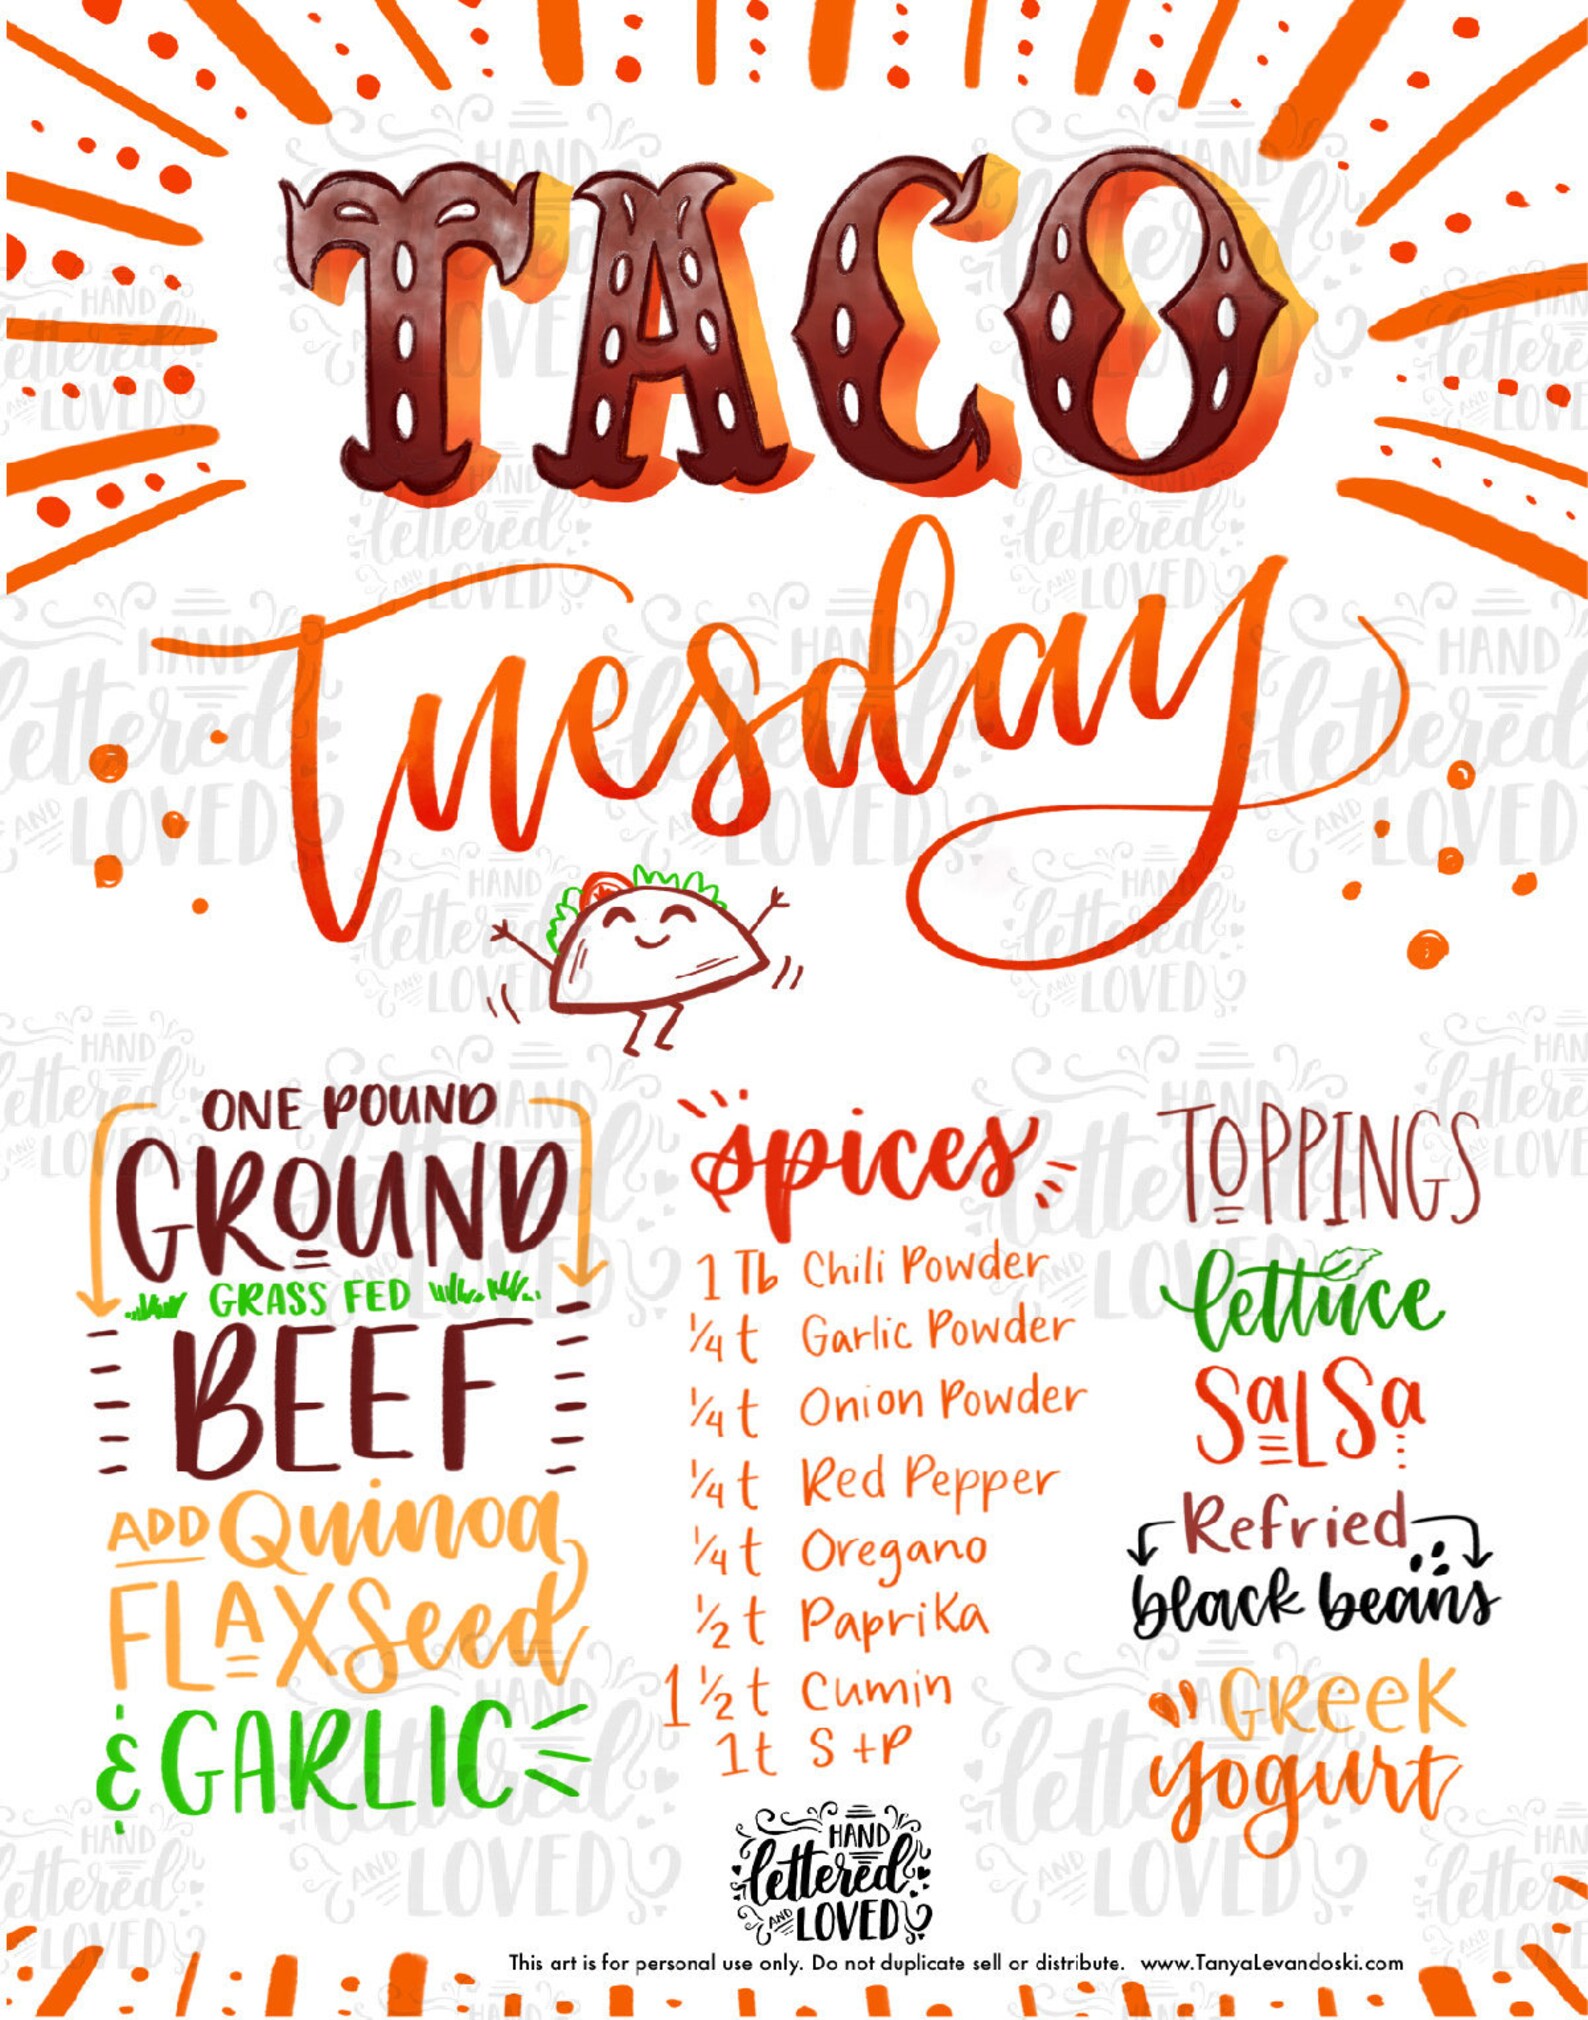 TACO
Tuesday
ONE POUND
GROUND
GRASS FED
BEEF
ADD Quinoa,
FLAXSeed
& GARLIC
spices
1 Tb Chili Powder
¼ t Garlic Powder
¼ t Onion Powder
¼ t Red Pepper
¼ t Oregano
½ t Paprika
1 ½ t Cumin
1 t S + P
TOPPINGS
lettuce
SaLSa
Refried
black beans
GReeK
yogurt
HAND
lettered
AND LOVED
This art is for personal use only. Do not duplicate sell or distribute. www.TanyaLevandoski.com